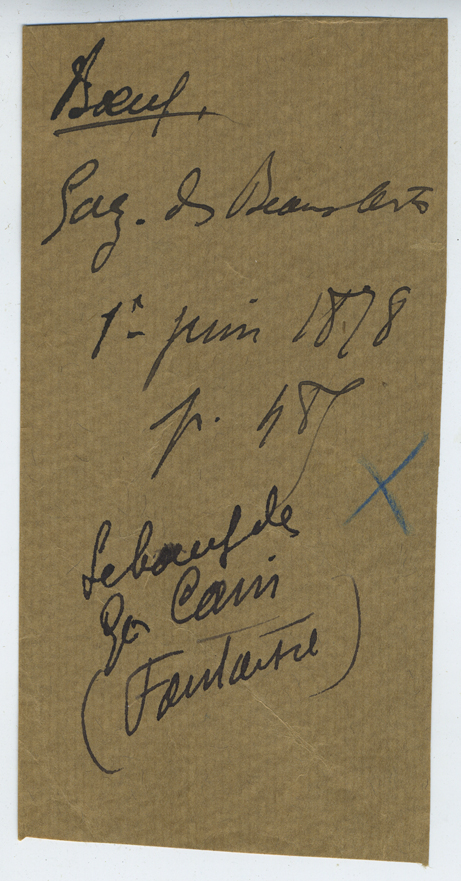 Bœuf.
Gaz. des Beaux Arts
1er juin 1878
p. 487
Le bœuf de
Gges Cain
(Fantaisie)